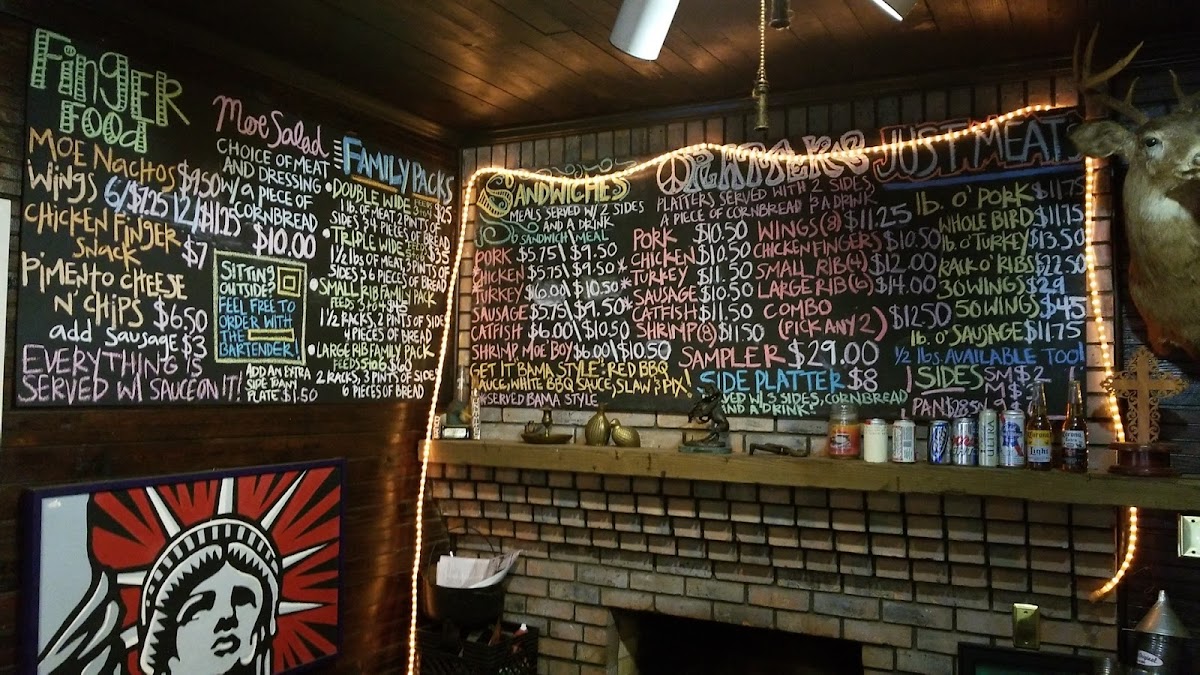 FINGER
FOOD
MOE NACHOS $9.50
WINGS 6/$7.25 12/$11.25
CHICKEN FINGER
SNACK $7
PIMENTO CHEESE
N' CHIPS $6.50
add sausage $3
EVERYTHING IS
SERVED W/ SAUCE ON IT!
Moe Salad
CHOICE OF MEAT
AND DRESSING
W/ A PIECE OF
CORNBREAD
$10.00
SITTING
OUTSIDE?
FEEL FREE TO
ORDER WITH
THE
BARTENDER!
ADD AN EXTRA
SIDE TO ANY
PLATE $1.50
FAMILY PACKS
•DOUBLE WIDE $25
1 lb. OF MEAT, 2 PINTS OF
SIDES & 4 PIECES OF BREAD
•TRIPLE WIDE $35
1 1/2 lbs OF MEAT, 3 PINTS OF
SIDES & 6 PIECES OF BREAD
•SMALL RIB FAMILY PACK
FEEDS 3 TO 4 $45
1 1/2 RACKS, 2 PINTS OF SIDES
4 PIECES OF BREAD
•LARGE RIB FAMILY PACK
FEEDS 5 TO 6 $60
2 RACKS, 3 PINTS OF SIDES
6 PIECES OF BREAD
SANDWICHES
MEALS SERVED W/ 2 SIDES
AND A DRINK
SANDWICH \ MEAL
PORK $5.75 \ $9.50
CHICKEN $5.75 \ $9.50*
TURKEY $6.00 \ $10.50*
SAUSAGE $5.75 \ $9.50*
CATFISH $6.00 \ $10.50
SHRIMP MOE'BOY $6.00 \ $10.50
GET IT BAMA STYLE: RED BBQ
SAUCE, WHITE BBQ SAUCE, SLAW & PIX!
*SERVED BAMA STYLE
PLATTERS
PLATTERS SERVED WITH 2 SIDES,
A PIECE OF CORNBREAD & A DRINK
PORK $10.50
CHICKEN $10.50
TURKEY $11.50
SAUSAGE $10.50
CATFISH $11.50
SHRIMP (8) $11.50
WINGS (8) $11.25
CHICKEN FINGERS $10.50
SMALL RIB (4) $12.00
LARGE RIB (6) $14.00
COMBO
(PICK ANY 2) $12.50
SAMPLER $29.00
SIDE PLATTER $8
SERVED W/ 3 SIDES, CORNBREAD
AND A DRINK
JUST MEAT
lb. O' PORK $11.75
WHOLE BIRD $11.75
lb. O' TURKEY $13.50
RACK O' RIBS $22.50
30 WINGS $29
50 WINGS $45
lb. O' SAUSAGE $11.75
1/2 lbs. AVAILABLE TOO!
SIDES SM $2
PAN $28
Corona
Light
Corona